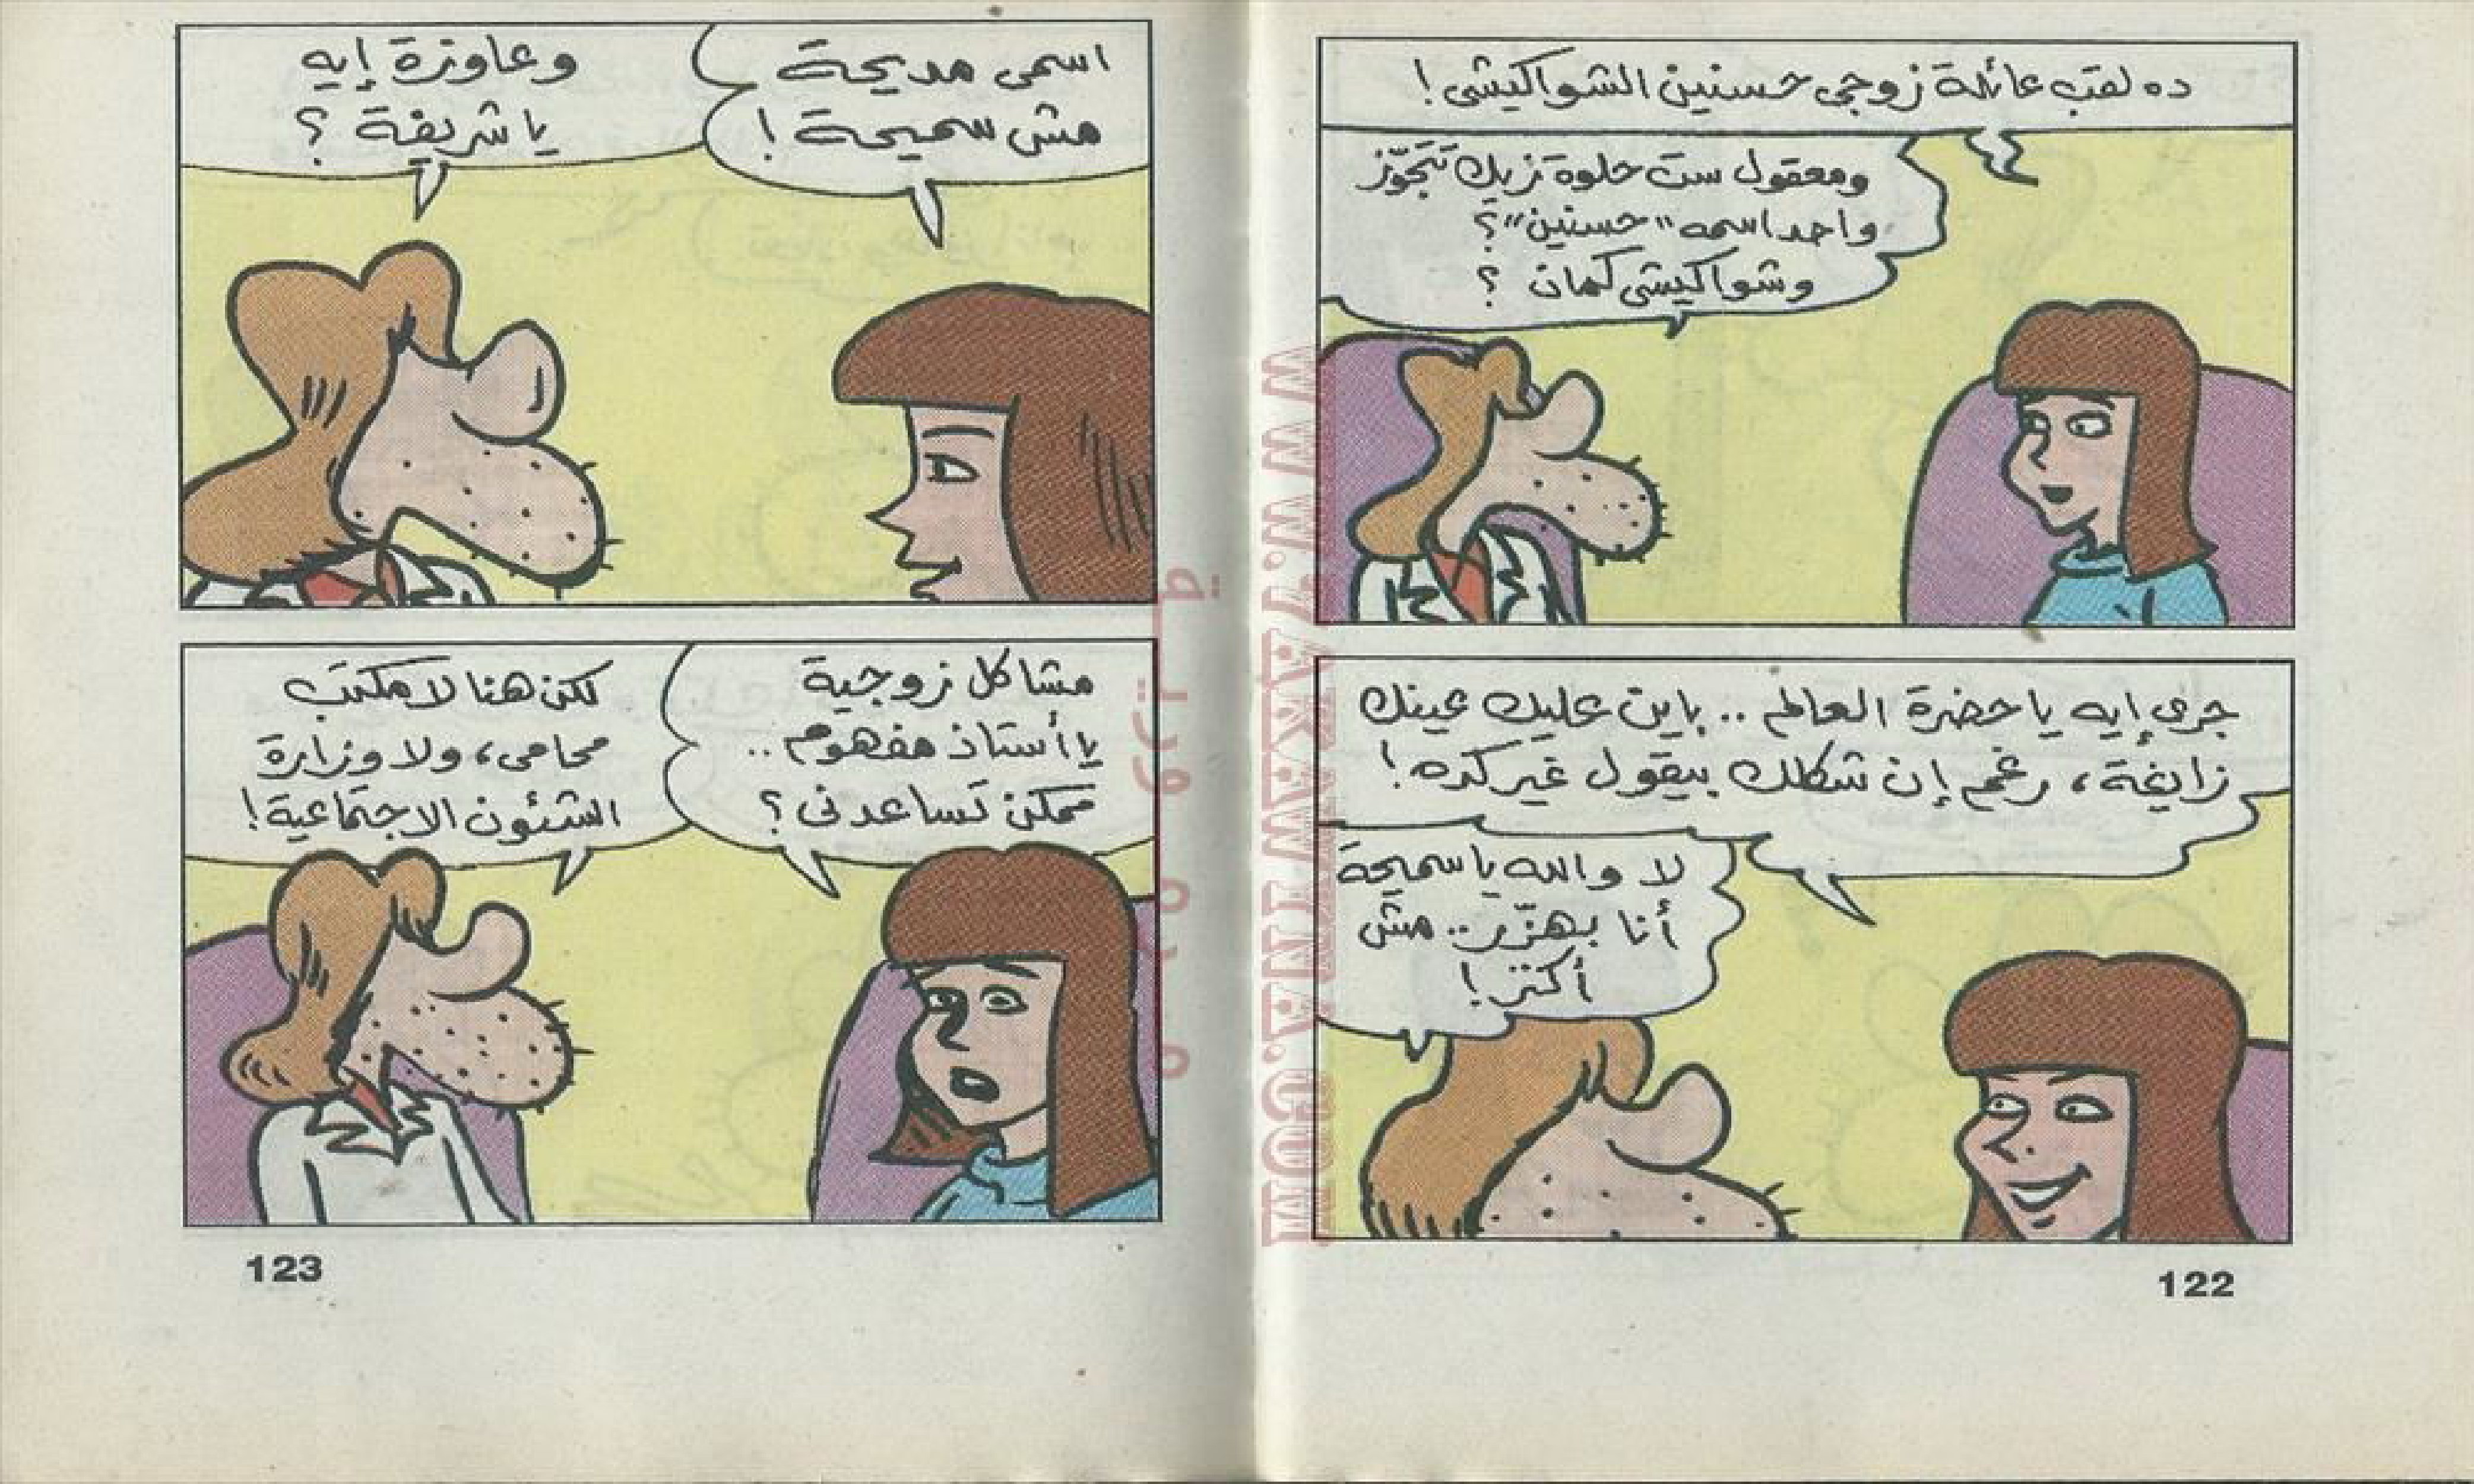 ده لقب عائلة زوجى حسنين الشواكيشى!
ومعقول ست حلوة زيك تتجوّز
واحد اسمه "حسنين"؟
وشواكيشى كمان ؟
جرى إيه يا حضرة العالم .. باين عليك عينك
زايغة، رغم إن شكلك بيقول غير كده!
لا والله يا سميحة
أنا بهزّر.. مش
أكتر!
122
اسمى مديحة
مش سميحة!
وعاوزة إيه
يا شريفة ؟
مشاكل زوجية
يا أستاذ مفهوم ..
ممكن تساعدنى؟
لكن هنا لا مكتب
محامى، ولا وزارة
الشئون الاجتماعية!
123
WWW.VAREWAYNAA.COM